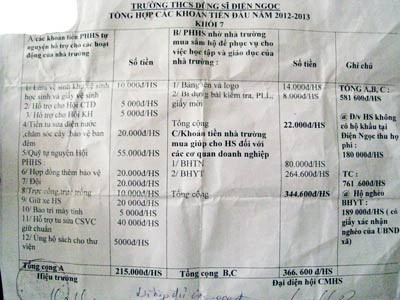 TRƯỜNG THCS DŨNG SĨ ĐIỆN NGỌC
TỔNG HỢP CÁC KHOẢN TIỀN ĐẦU NĂM 2012-2013
KHỐI 7
A/ các khoản tiền PHHS tự nguyện hỗ trợ cho các hoạt động của nhà trường :
Số tiền
B/ PHHS nhờ nhà trường mua sắm hộ để phục vụ cho việc học tập và giáo dục của nhà trường :
Số tiền
Ghi chú
vệ sinh
học sinh và giấy vệ sinh
10.000đ/HS
2/ Hỗ trợ cho Hội CTĐ
5 000đ/HS
3/ Hỗ trợ cho Hội KH
5 000đ/HS
4/ Tiền tu sửa điện nước ,chăm sóc cây bảo vệ ban đêm
20.000đ/HS
5/Quỹ tự nguyện Hội PHHS :
55.000đ/HS
6/ Hợp đồng thêm bảo vệ
20.000đ/HS
7/ Đội
20.000đ/HS
8/Trực cổng, trực trống
10.000đ/HS
9/ Giữ xe HS
20 000đ/HS
10/ Bảo trì máy tính
5 000đ/HS
11/ Hỗ trợ tu sửa CSVC
40 000đ/HS
giữ chuẩn
12/ Ủng hộ sách cho thư viện
5000đ/HS
1/ Bảng tên và logo
14.000đ/HS
2/ Bì đựng bài kiểm tra, PLL, giấy mời
8.000đ/HS
Tổng cộng
22.000đ/HS
C/Khoản tiền nhà trường mua giúp cho HS đối với các cơ quan doanh nghiệp
1/ BHTN
80.000đ/HS
2/ BHYT
264.600đ/HS
Tổng cộng
344.600đ/HS
TỔNG A,B, C :
581 600đ/HS
@ Đ/v HS không có hộ khẩu tại Điện Ngọc thu họ phí :
180 000đ/HS
TC :
761 .600đ/HS
@ Hộ nghèo BHYT :
189 000đ/HS ( có giấy xác nhận nghèo của UBND xã)
Tổng cộng A
215.000đ/HS
Tổng cộng B,C
366. 600 đ/HS
Hiệu trưởng
Đại diện hội CMHS